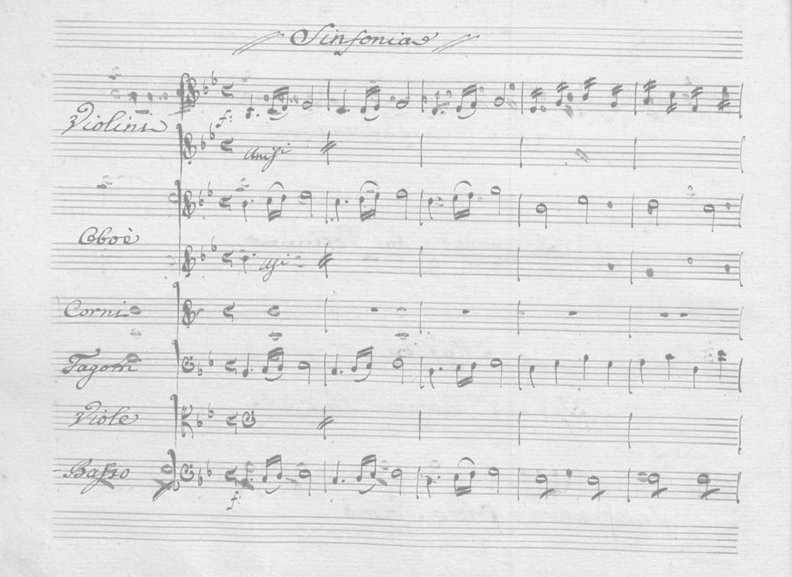 Sinfonia
Violini
f:
Unis:
Oboè
Corni
Fagotti
Viole
Basso
f